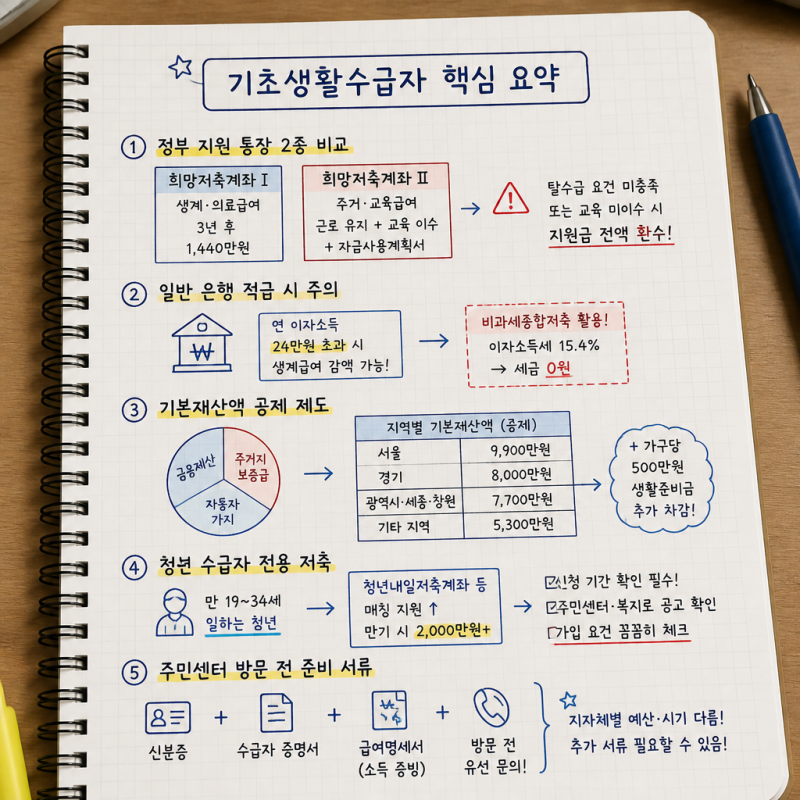 기초생활수급자 핵심 요약
① 정부 지원 통장 2종 비교
희망저축계좌 Ⅰ
생계·의료급여
3년 후
1,440만원
희망저축계좌 Ⅱ
주거·교육급여
근로 유지 + 교육 이수
+ 자금사용계획서
탈수급 요건 미충족
또는 교육 미이수 시
지원금 전액 환수!
② 일반 은행 적금 시 주의
₩
연 이자소득
24만원 초과 시
생계급여 감액 가능!
비과세종합저축 활용!
이자소득세 15.4%
→ 세금 0원
③ 기본재산액 공제 제도
금융제산
주거지
보증급
자동자
가지
지역별 기본재산액 (증제)
서울 9,900만원
경기 8,000만원
광역시·세종·창원 7,700만원
기타 지역 5,300만원
+ 가구당
500만원
생활준비금
추가 차감!
④ 청년 수급자 전용 저축
만 19~34세
일하는 청년
청년내일저축계좌 등
매칭 지원 ↑
만기 시 2,000만원+
신청 기간 확인 필수!
주민센터·복지로 공고 확인
가입 요건 꼼꼼히 체크
⑤ 주민센터 방문 전 준비 서류
신분증
+
수급자 증명서
+
급여명세서
(소득 증빙)
+
방문 전
유선 문의!
지자체별 예산·시기 다름!
추가 서류 필요할 수 있음!